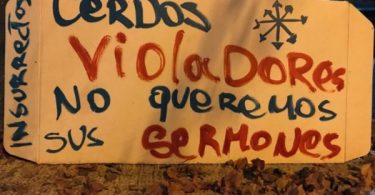 INSURRECTOS
CERDOS
VIOLADORES
NO QUEREMOS
SUS SERMONES